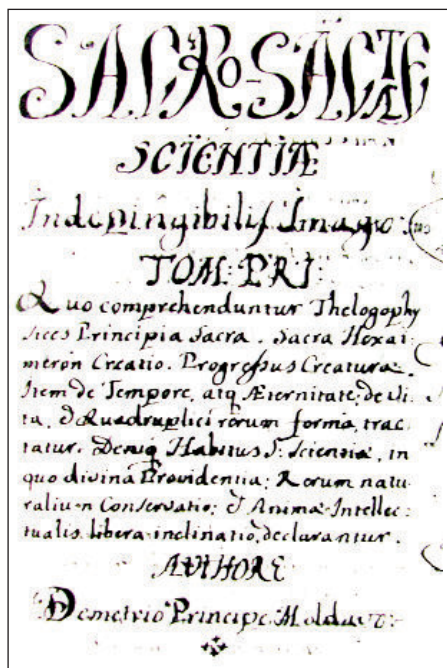 SACRO-SANCTÆ
SCIENTIÆ
Indepingibilis Imago
TOM: PRI:
Quo comprehenduntur Thelogophy
sices Principia Sacra. Sacra Hexai
meron Creatio. Progressus Creaturæ.
Item de Tempore, atq Æternitate, de Vi
ta, & Quadruplici rerum forma, trac
tatur. Deniq Habitus S: Scientiæ, in
quo divina Providentia: Rerum natu
ralium Conservatio: & Animæ Intellec
tualis libera inclinatio, declarantur.
AUTHORE
Demetrio Principe Moldavo: